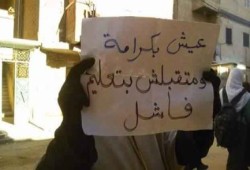 عيش بكرامة
ومتقبلش بتعليم
فاشل